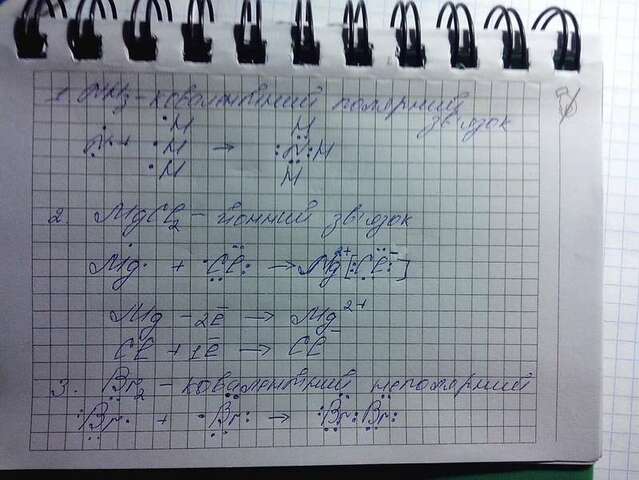 1. NH₃ - ковалентний полярний
зв'язок
•H H
•N• + •H → :N:H
•H H
2. MgCl₂ - йонний зв'язок
Mg• + •Cl: → Mg²⁺[:Cl:⁻]
Mg - 2ē → Mg²⁺
Cl + 1ē → Cl⁻
3. Br₂ - ковалентний неполярний
:Br• + •Br: → :Br:Br: